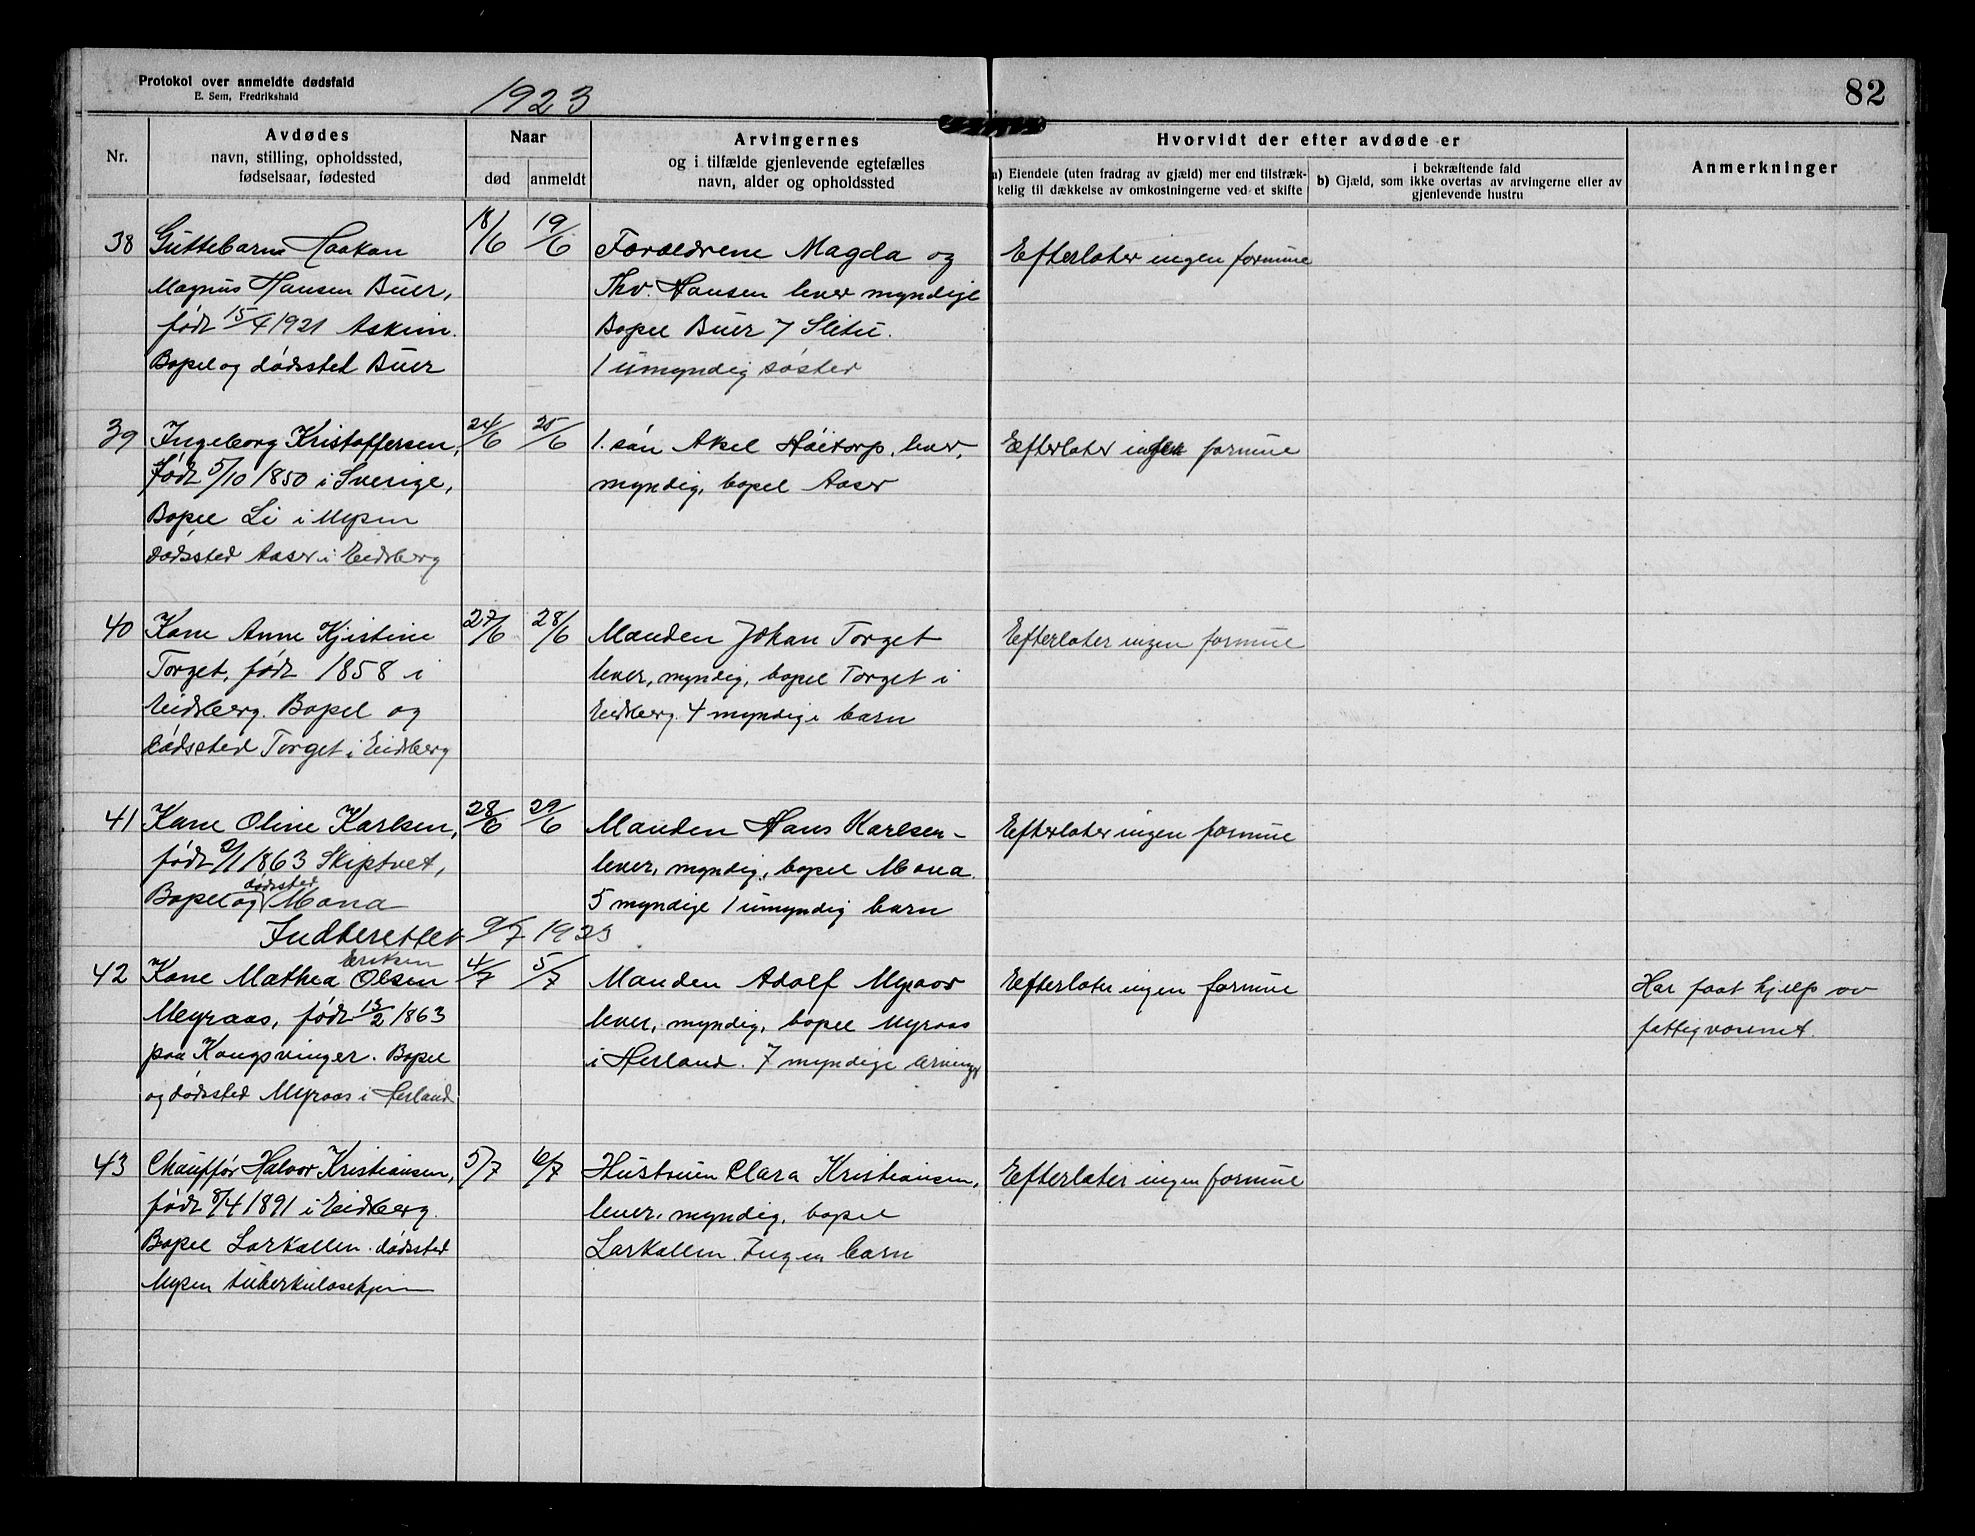 Protokol over anmeldte dødsfald
E. Sem, Fredrikshald
1923
82
Nr.
Avdødes
navn, stilling, opholdssted,
fødselsaar, fødested
Naar
død
anmeldt
Arvingernes
og i tilfælde gjenlevende egtefælles
navn, alder og opholdssted
Hvorvidt der efter avdøde er
a) Eiendele (uten fradrag av gjæld) mer end tilstræk-
kelig til dækkelse av omkostningerne ved et skifte
i bekræftende fald
b) Gjæld, som ikke overtas av arvingerne eller av
gjenlevende hustru
Anmerkninger
38
Guttebarn Haakon
Magnus Hansen Buer,
født 15/4 1921 Askim.
Bopel og dødssted Buer
18/6
19/6
Forældrene Magda og
Thv. Hansen lever myndige
Bopel Buer i Slitu.
1 umyndig søster
Efterlater ingen formue
39
Ingeborg Kristoffersen,
født 5/10 1850 i Sverige,
Bopel Li i Mysen
dødssted Aaser i Eidsberg
24/6
25/6
1. søn Aksel Høitorp, lever,
myndig, bopel Aaser
Efterlater ingen formue
40
Kone Anne Kjistine
Torget, født 1858 i
Eidsberg. Bopel og
dødssted Torget i Eidsberg
27/6
28/6
Manden Johan Torget
lever, myndig, bopel Torget i
Eidsberg. 4 myndige barn
Efterlater ingen formue
41
Kone Oline Karlsen,
født 2/1 1863 Skiptvet,
dødssted
Bopel og Mona
28/6
29/6
Manden Hans Karlsen-
lever, myndig, bopel Mona.
5 myndige 1 umyndig barn
Efterlater ingen formue
Indberettet 9/7 1923
42
Eriksen
Kone Mathea Olsen
Myraas, født 13/2 1863
paa Kongsvinger. Bopel
og dødssted Myraas i Herland
4/7
5/7
Manden Adolf Myraas
lever, myndig, bopel Myraas
i Herland. 7 myndige arvinger
Efterlater ingen formue
Har faat hjelp av
fattigvæsenet.
43
Chauffør Halvor Kristiansen,
født 8/4 1891 i Eidsberg.
Bopel Larkollen. dødssted
Mysen tuberkulosehjem
5/7
6/7
Hustruen Clara Kristiansen,
lever, myndig, bopel
Larkollen. Ingen barn
Efterlater ingen formue